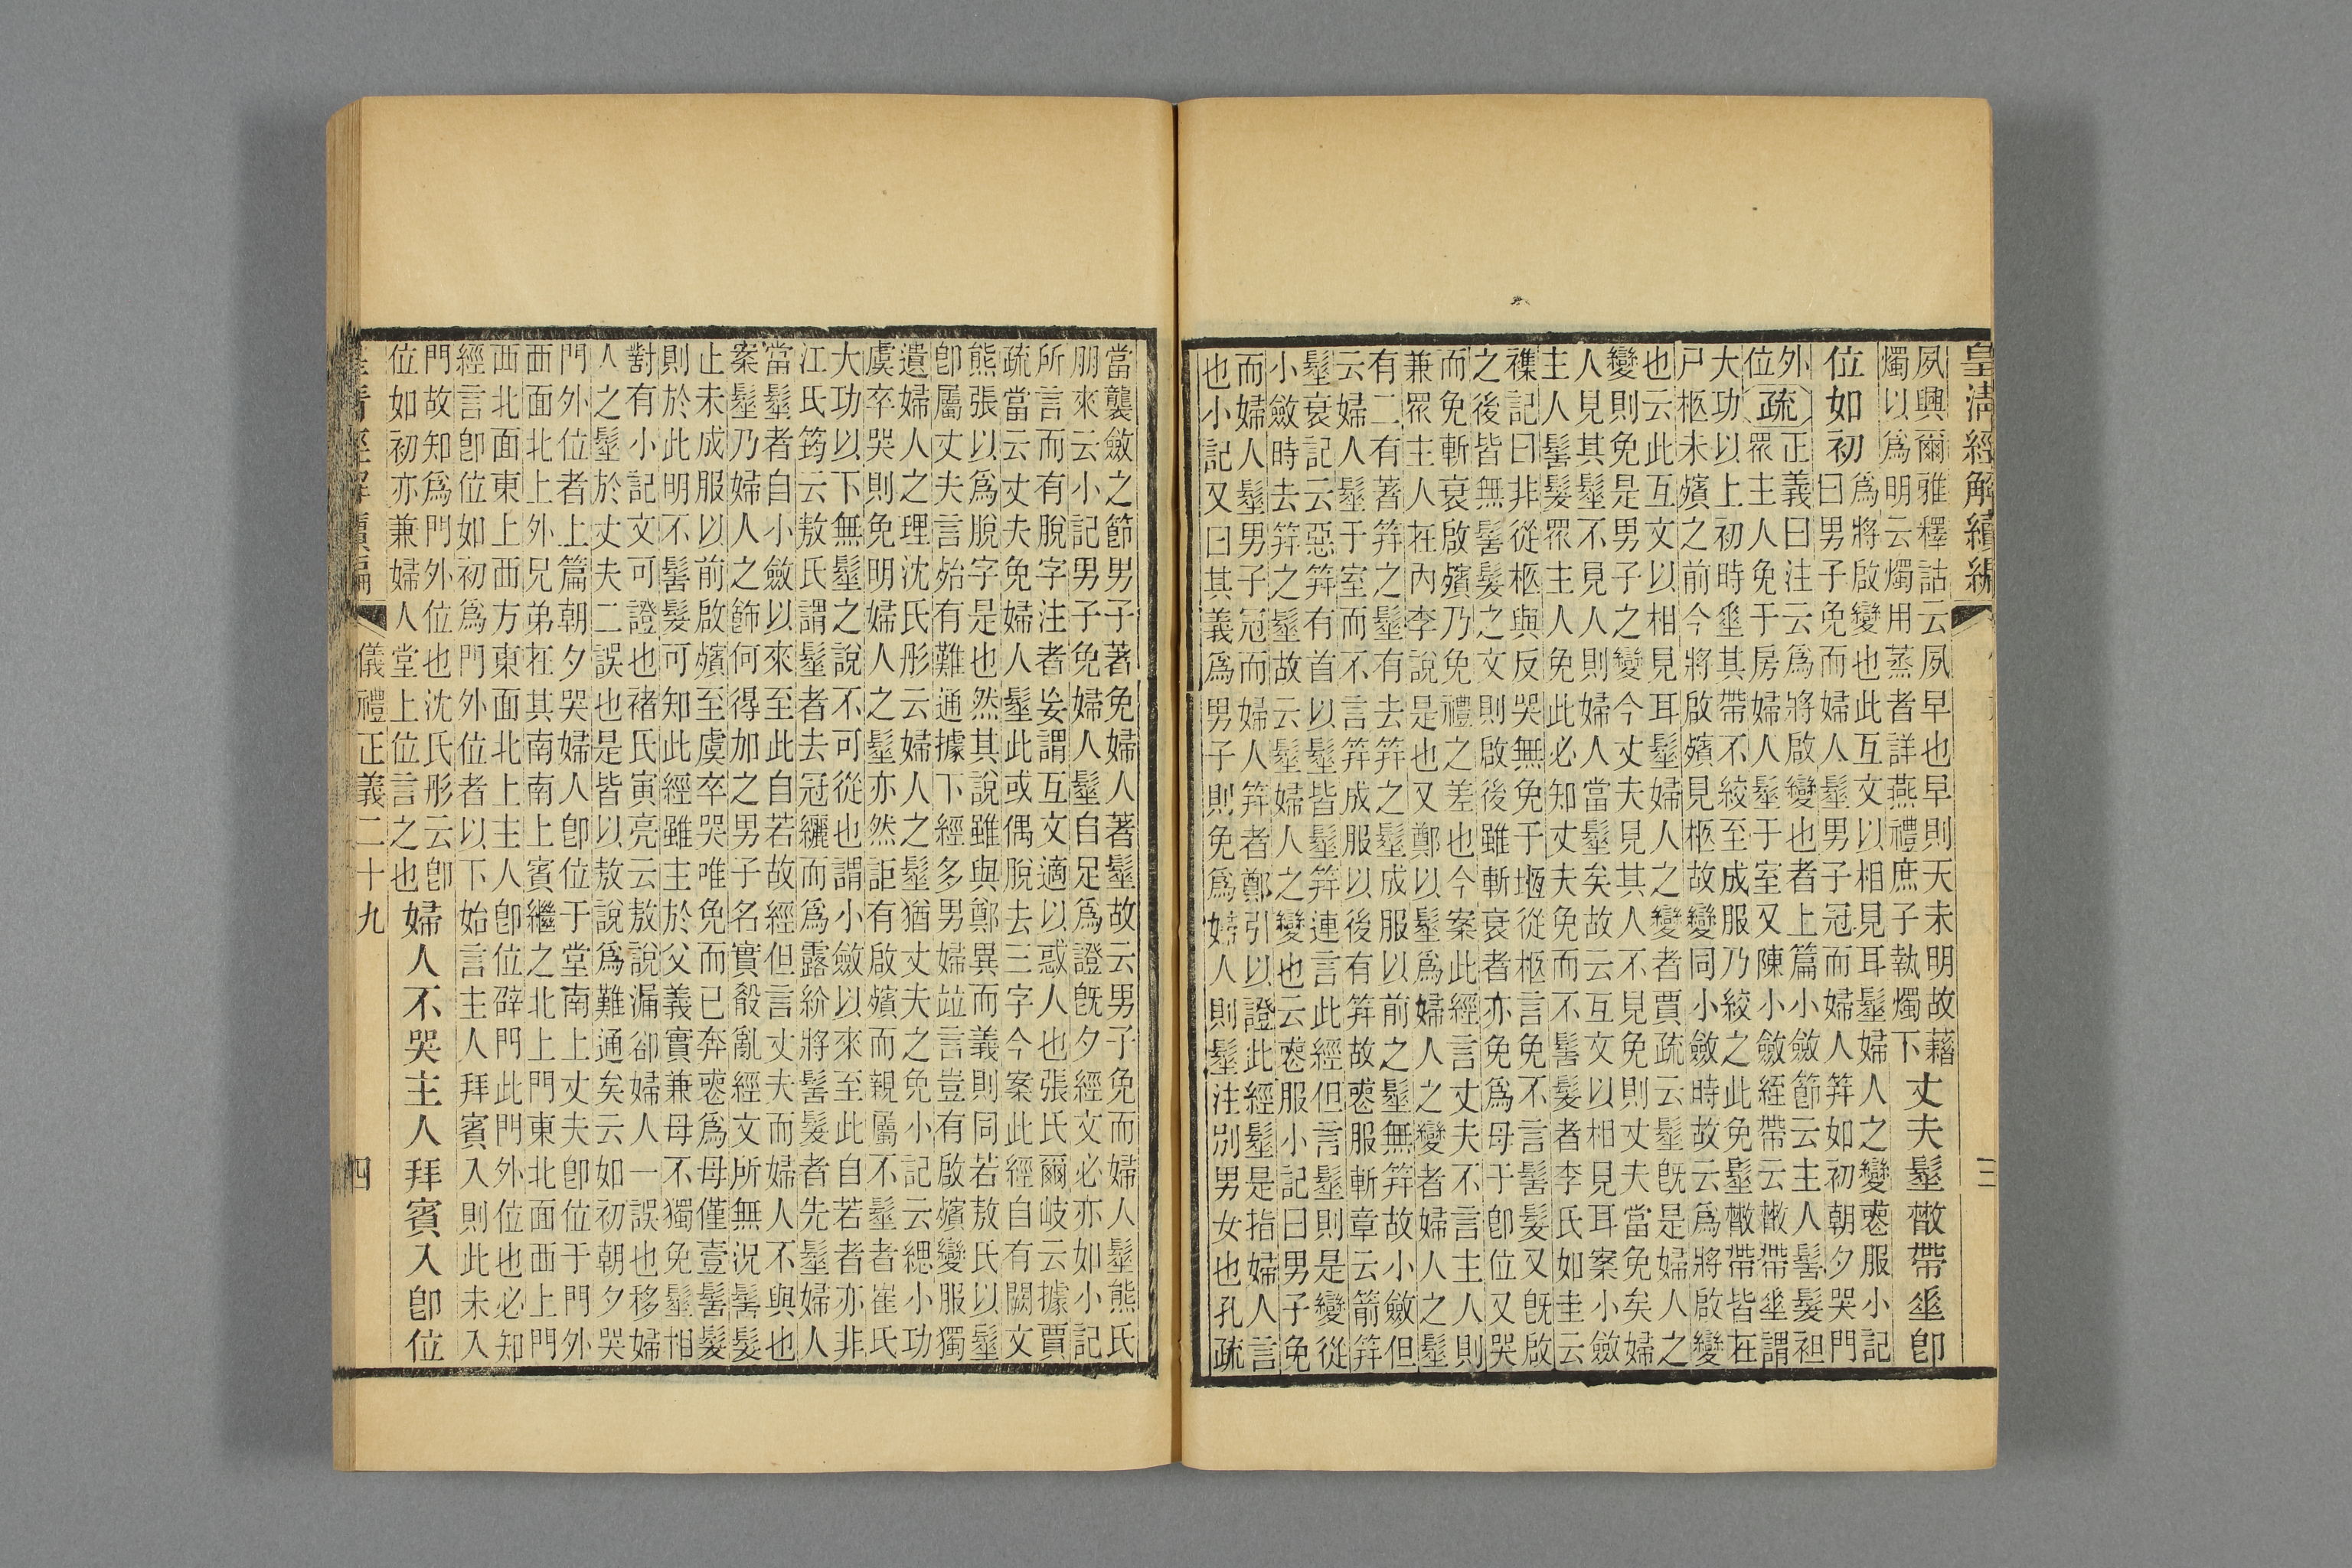 皇清經解續編
三
夙興爾雅釋詁云夙早也早則天未明故藉
燭以爲明云燭用蒸者詳燕禮庶子執燭下
丈夫髽散帶垂卽
位如初
爲將啟變也此互文以相見耳髽婦人之變喪服小記
曰男子免而婦人髽男子冠而婦人笄如初朝夕哭門
外
位
疏
正義曰注云爲將啟變也者上篇小斂節云主人髺髮袒
衆主人免于房婦人髽于室又陳小斂絰帶云散帶垂謂
大功以上初時垂其帶不絞至成服乃絞之此免髽散帶皆在
尸柩未殯之前今將啟殯見柩故變同小斂時故云爲將啟變
也云此互文以相見耳髽婦人之變者賈疏云髽旣是婦人之
變則免是男子之變今丈夫見其人不見免則丈夫當免矣婦
人見其髽不見人則婦人當髽矣故云互文以相見耳案小斂
主人髺髮衆主人免此必知丈夫免而不髺髮者李氏如圭云
襍記曰非從柩與反哭無免于堩從柩言免不言髺髮又旣啟
之後皆無髺髮之文則啟後雖斬衰者亦免爲母于卽位又哭
而免斬衰啟殯乃免禮之差也今案此經言丈夫不言主人則
兼衆主人在內李說是也又鄭以髽爲婦人之變者婦人之髽
有二有著笄之髽有去笄之髽成服以前之髽無笄故小斂但
云婦人髽于室而不言笄成服以後有笄故喪服斬章云箭笄
髽衰記云惡笄有首以髽皆髽笄連言此經但言髽則是變從
小斂時去笄之髽故云髽婦人之變也云喪服小記曰男子免
而婦人髽男子冠而婦人笄者鄭引以證此經髽是指婦人言
也小記又曰其義爲男子則免爲婦人則髽注別男女也孔疏
當襲斂之節男子著免婦人著髽故云男子免而婦人髽熊氏
朋來云小記男子免婦人髽自足爲證旣夕經文必亦如小記
所言而有脫字注者妄謂互文適以惑人也張氏爾岐云據賈
疏當云丈夫免婦人髽此或偶脫去三字今案此經自有闕文
熊張以爲脫字是也然其說雖與鄭異而義則同若敖氏以髽
卽屬丈夫言殆有難通據下經多男婦竝言豈有啟殯變服獨
遺婦人之理沈氏彤云婦人之髽猶丈夫之免小記云緦小功
虞卒哭則免明婦人之髽亦然詎有啟殯而親屬不髽者崔氏
大功以下無髽之說不可從也謂小斂以來至此自若者亦非
江氏筠云敖氏謂髽者去冠纚而爲露紒將髺髮者先髽婦人
當髽者自小斂以來至此自若故經但言丈夫而婦人不與也
案髽乃婦人之飾何得加之男子名實殽亂經文所無況髺髮
止未成服以前啟殯至虞卒哭唯免而已奔喪爲母僅壹髺髮
則於此明不髺髮可知此經雖主於父義實兼母不獨免髽相
對有小記文可證也褚氏寅亮云敖說漏卻婦人一誤也移婦
人之髽於丈夫二誤也是皆以敖說爲難通矣云如初朝夕哭
門外位者上篇朝夕哭婦人卽位于堂南上丈夫卽位于門外
西面北上外兄弟在其南南上賓繼之北上門東北面西上門
西北面東上西方東面北上主人卽位辟門此門外位也必知
經言卽位如初爲門外位者以下始言主人拜賓入則此未入
門故知爲門外位也沈氏彤云卽
位如初亦兼婦人堂上位言之也
婦人不哭主人拜賓入卽位
皇清經解續編
儀禮正義二十九
四